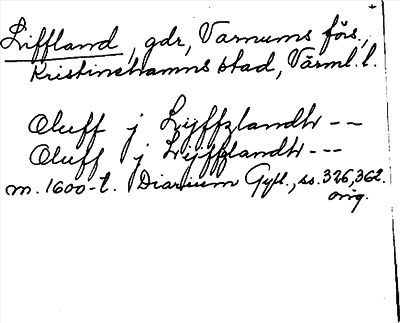 Liffland, gdr, Varnums förs.,
Kristinehamns stad, Värml. l.
Oluff j Lyffzlandh --
Oluff j Lyffzlandh ---
m. 1600-t. Diarium Gyll., ss. 326, 362.
orig.